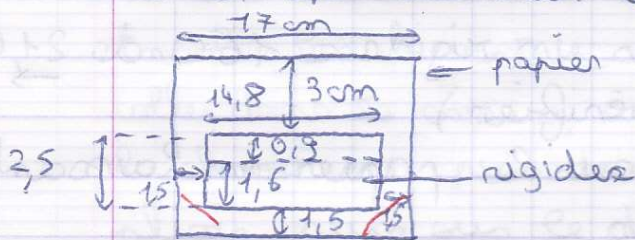 17 cm
← papier
14,8 3 cm
2,5 0,9
1,5 1,6 rigidex
1,5 1,5